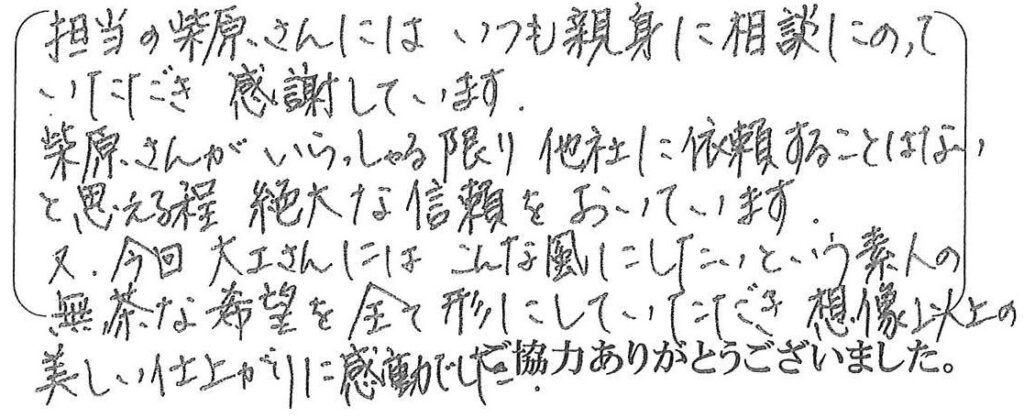 担当の柴原さんにはいつも親身に相談にのって
いただき 感謝しています.
柴原さんがいらっしゃる限り 他社に依頼することはない
と思える程 絶大な信頼をおいています.
又.今回 大工さんには こんな風にしたいという素人の
無茶な希望を全て形にしていただき 想像以上の
美しい仕上がりに感動でした.
ご協力ありがとうございました。